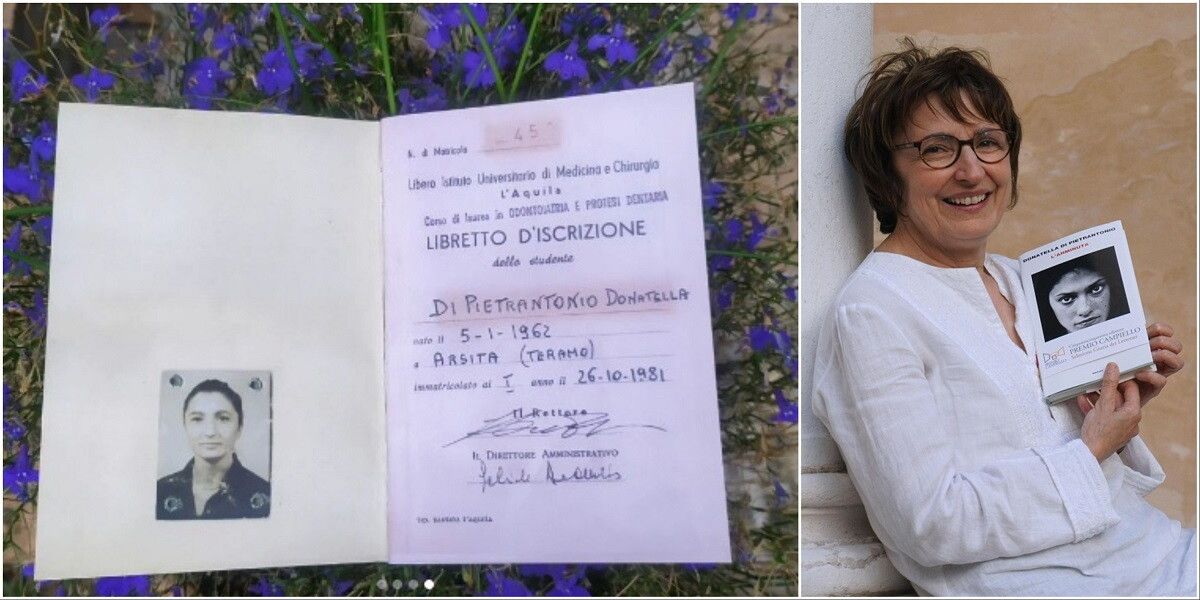 N. di Matricola 45
Libero Istituto Universitario di Medicina e Chirurgia
L'Aquila
Corso di laurea in ODONTOIATRIA E PROTESI DENTARIA
LIBRETTO D'ISCRIZIONE
dello studente
DI PIETRANTONIO DONATELLA
nato il 5-1-1962
a ARSITA (TERAMO)
immatricolato al I anno il 26-10-1981
Il Rettore
IL DIRETTORE AMMINISTRATIVO
L'AQUILA
DONATELLA DI PIETRANTONIO
L'ARMINUTA
PREMIO CAMPIELLO